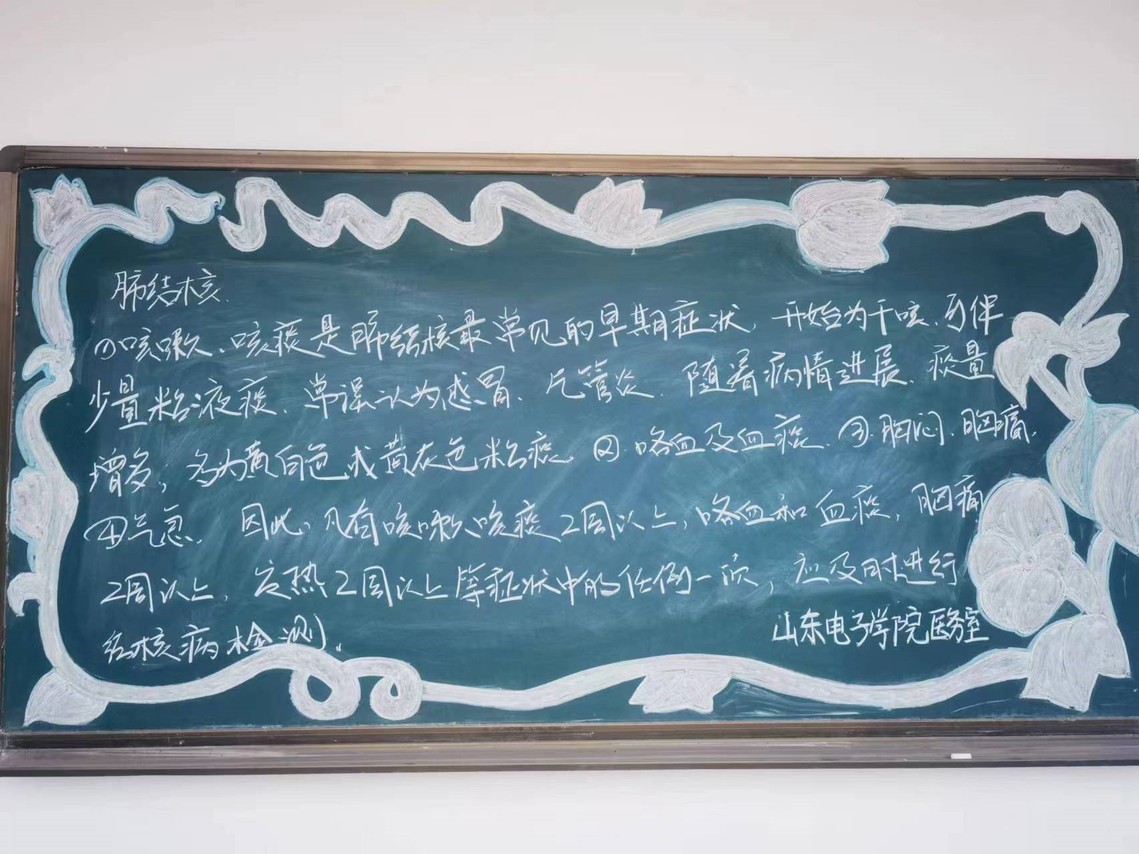 肺结核.
①咳嗽、咳痰是肺结核最常见的早期症状,开始为干咳.可伴
少量粘液痰、常误认为感冒、气管炎.随着病情进展.痰量
增多,多为黄白色或黄灰色粘痰.②.咯血及血痰.③.胸闷.胸痛.
④气急.因此,凡有咳嗽、咳痰2周以上,咯血和血痰,胸痛
2周以上,发热2周以上等症状中的任何一项,应及时进行
结核病检测).
山东电子学院医务室